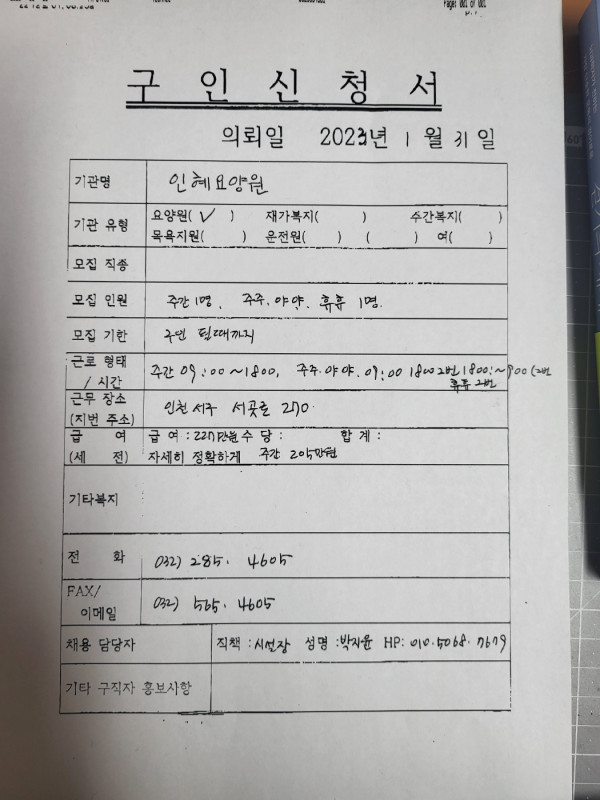 Page: 001 of 001
구 인 신 청 서
의뢰일 2023년 1 월 31 일
기관명 인혜요양원
기관 유형 요양원( ✓ ) 재가복지( ) 수간복지( )
목욕지원( ) 운전원( ) ( ) 여( )
모집 직종
모집 인원 주간 1명, 주주, 야야, 휴휴 1명.
모집 기한 구인 될때까지
근로 형태 / 시간 주간 09:00~1800, 주주.야야. 09:00 1800 2번 1800:~900 (2번
휴휴 2번
근무 장소 (지번 주소) 인천 서구 서곶로 270.
급 여 급 여 : 227만원 수 당 : 합 계 :
(세 전) 자세히 정확하게 주간 205만원
기타복지
전 화 032) 285. 4605
FAX/ 이메일 032) 565. 4605
채용 담당자 직책 : 시설장 성명 : 박지윤 HP: 010.5068.7679
기타 구직자 홍보사항